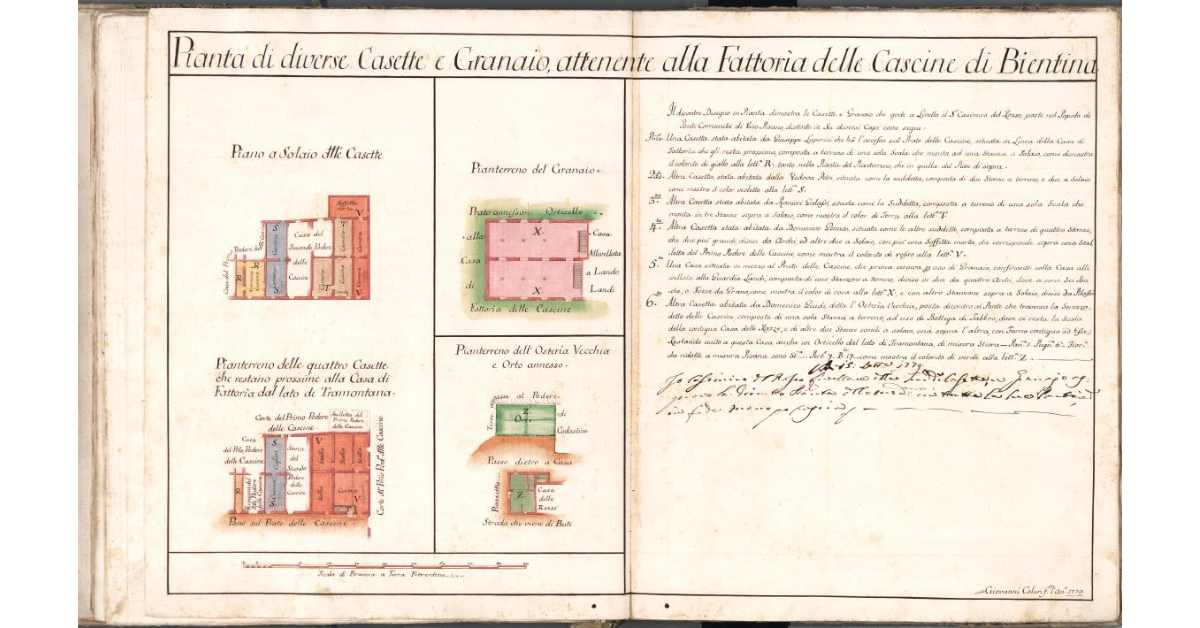 Pianta di diverse Casette e Granaio, attenente alla Fattorìa delle Cascine di Bientina
Piano a Solaio delle Casette
Soffitta morta
V
S
T
Casa del
Secondo Podere
delle
Cascine
R
R
T
V
Pianterreno delle quattro Casette
che restano prossime alla Casa di
Fattorìa dal lato di Tramontana.
Corte del Primo Podere
delle Cascine
Stalletta del
Primo Podere
delle Cascine
Casa
del Pmo Podere
delle Cascine
S
Stanze
del
Secondo
Podere
delle
Cascine
V
Stalla
Stalla
Stalla
Stalla
Cucina
V
R
S
Piano sul Prato delle Cascine
Pianterreno del Granaio.
Prato annesso
Orticello
alla
Casa
di
X.
X.
Casa
Allivellata
a Lando
Landi
Fattoria delle Cascine
Pianterreno dell'Osterìa Vecchia
e Orto annesso.
Terre annesse al Podere
di
Cadastino
Z
Orto
Passo dietro a Casa
Piazzetta
Z
Casa
delle
Rozze
Strada che viene di Buti
Scala di Braccia a Terra Fiorentine
Il dicontro Disegno in Pianta dimostra le Casette e Granaio che gode a Livello il Sr. Casimiro del Rosso, poste nel Popolo di
Buti Comunità di Vico Pisano, distinto in Sei diversi Capi come segue.
Pmo. Una Casetta stata abitata da Giuseppe Luperini che hà l'accesso sul Prato delle Cascine, situata in Linea della Casa di
Fattoria che gli resta prossima, composta a terreno di una sola Scala che monta ad una Stanza a Solaio, come dimostra
il colorito di giallo alla lett. R, tanto nella Pianta del Pianterreno, che in quella del Pian di sopra.
2do. Altra Casetta stata abitata dalla Vedova Petri, situata come la suddetta, composta di due Stanze a terreno, e due a Solaio
come mostra il color violetto alla lett. S.
3. Altra Casetta stata abitata da Ranieri, situata come la Suddetta, composta a terreno di una sola Scala che
monta in tre Stanze sopra a Solaio, come mostra il color di Terra alla lett. T.
4. Altra Casetta stata abitata da Domenico Bernai, situata come le altre suddette, composta a terreno di quattro Stanze,
che due più grandi, divise da Archi, ed altre due a Solaio, con più una Soffitta morta, che corrisponde sopra una Stal
letta del Primo Podere delle Cascine, come mostra il colorito di rosso alla lett. V.
5. Una Casa situata in mezzo al Prato delle Cascine, che prova servirsi ad uso di Granaio, confinante colla Casa alli
vellata alla Guardia Landi, composta di uno Stanzone a terreno, diviso in due da quattro Archi, dove vi sono Sei Bu
che, o Fosse da Grano, come mostra il color di rosa alla lett. X, e con altro Stanzone sopra a Solaio, diviso da Pilastri
6. Altra Casetta abitata da Domenico Guidi, detta l'Osterìa Vecchia, posta dicontro al Ponte che traversa la Serezza,
detto delle Cascine, composta di una sola Stanza a terreno, ad uso di Bottega di Fabbro, dove vi resta la Scala
della contigua Casa delle Rozze, e di altre due Stanze simili a solaio, una sopra l'altra, con Forno contiguo ad Esse,
Restando unito a questa Casa anche un Orticello dal lato di Tramontana, di misura
che ridotte a misura Pisana sono come mostra il colorito di verde alla lett. Z.
1779
Giovanni Caluri f. l'An. 1779